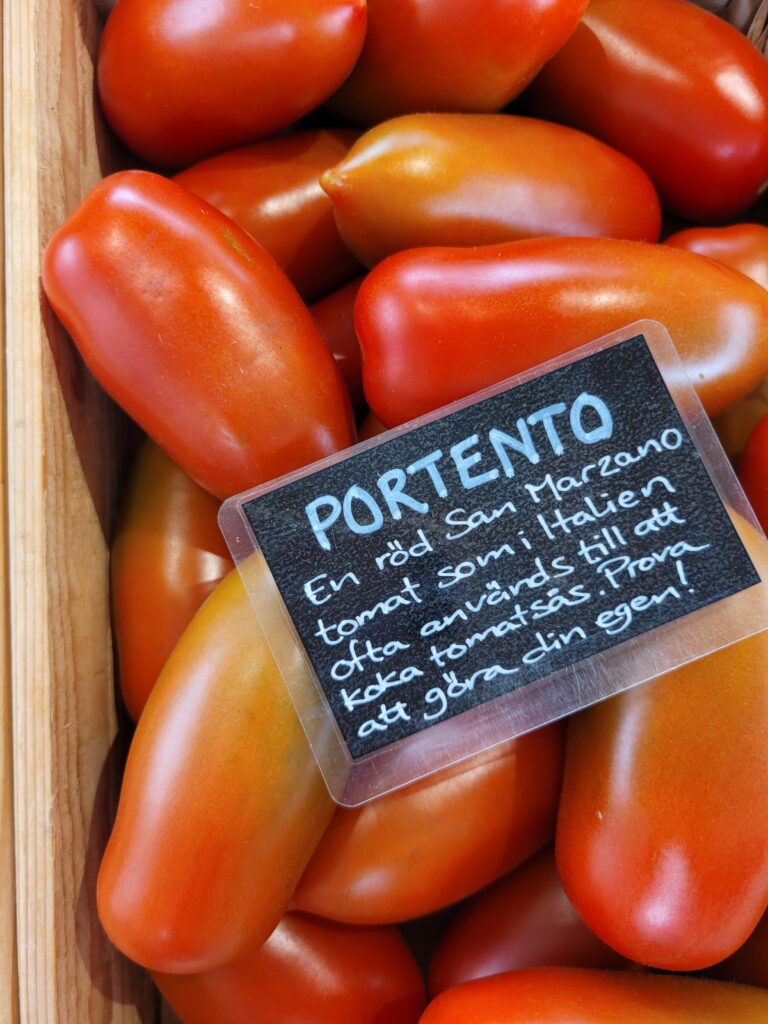 PORTENTO
En röd San Marzano
tomat som i Italien
ofta används till att
koka tomatsås. Prova
att göra din egen!